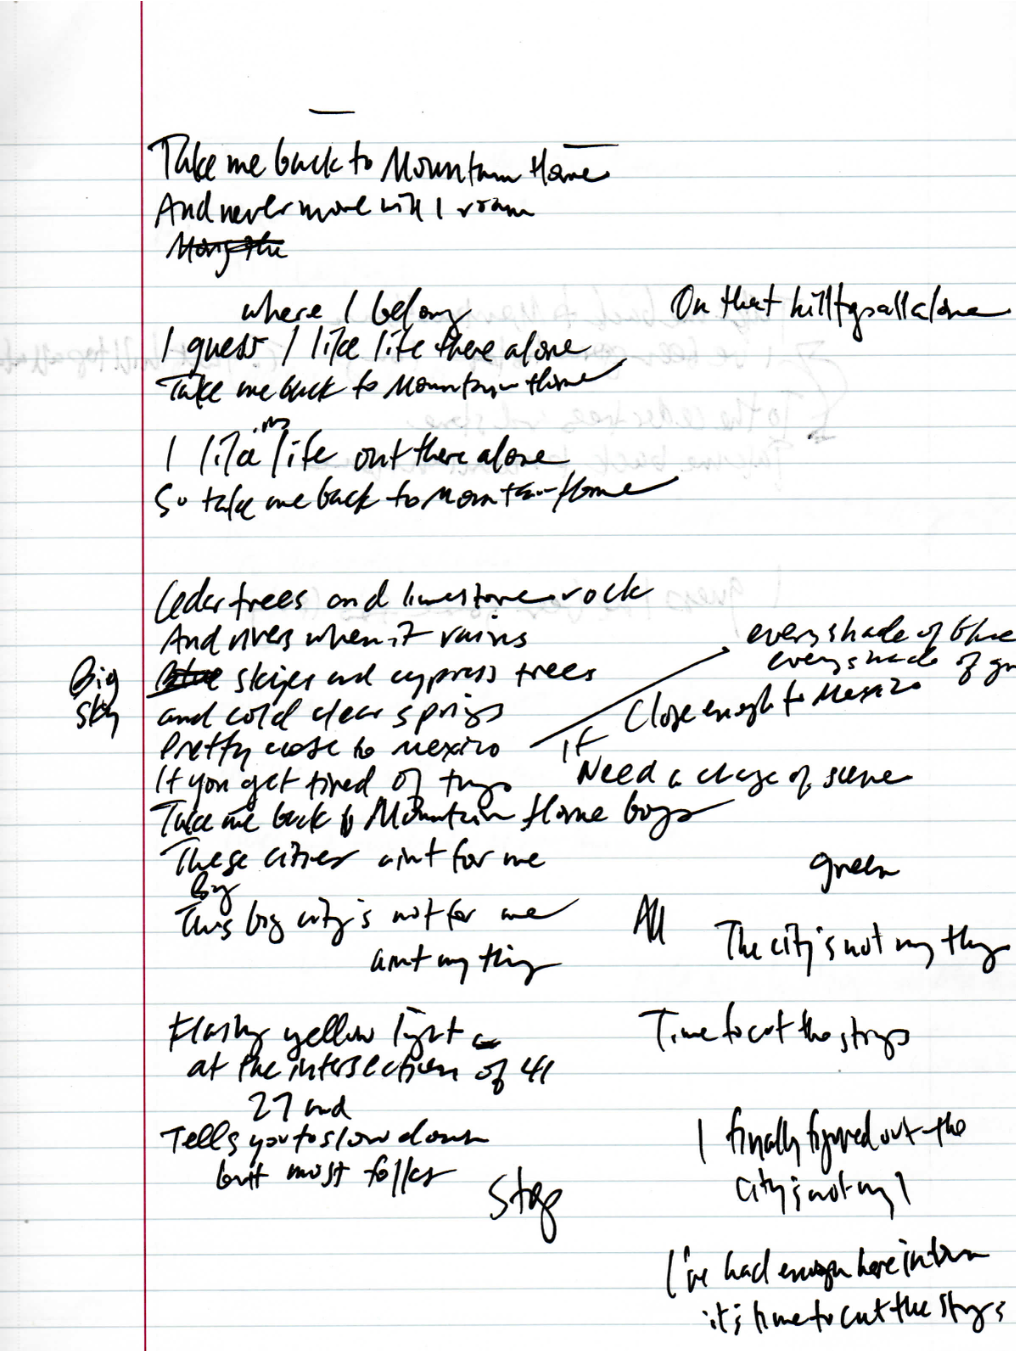 Take me back to Mountain Home
And never more will I roam
where I belong
On that hilltop all alone
I guess I like life there alone
Take me back to Mountain Home
I like life out there alone
So take me back to Mountain Home
Cedar trees and limestone rock
And rivers when it rains
every shade of blue
every shade of gr
Big
sky
Blue skyes and cypress trees
and cold clear springs
Close enough to Mexico
Pretty close to mexico
If
If you get tired of
Need a change of scene
Take me back to Mountain Home boys
These cities aint for me
green
Big
This big city's not for me
All
The city's not my thing
aint my thing
Flashing yellow light
Time to cut the strings
at the intersection of 41
27 and
Tells you to slow down
but most folks
Stop
I finally figured out the
city's not my
I've had enough here in town
it's time to cut the strings